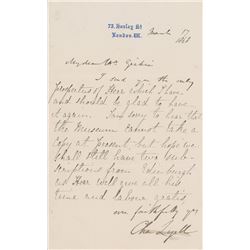 73, Harley St
London. W.
March 17
1868
My dear Mr
I send you the only
prospectus of Heer which I have
and should be glad to have
it again. I'm sorry to hear that
the Museum cannot take a
copy at present, but hope we
shall still have two subs-
criptions from Edinburgh
and Heer will give all his
time and labour gratis,
ever faithfully yrs
Cha Lyell